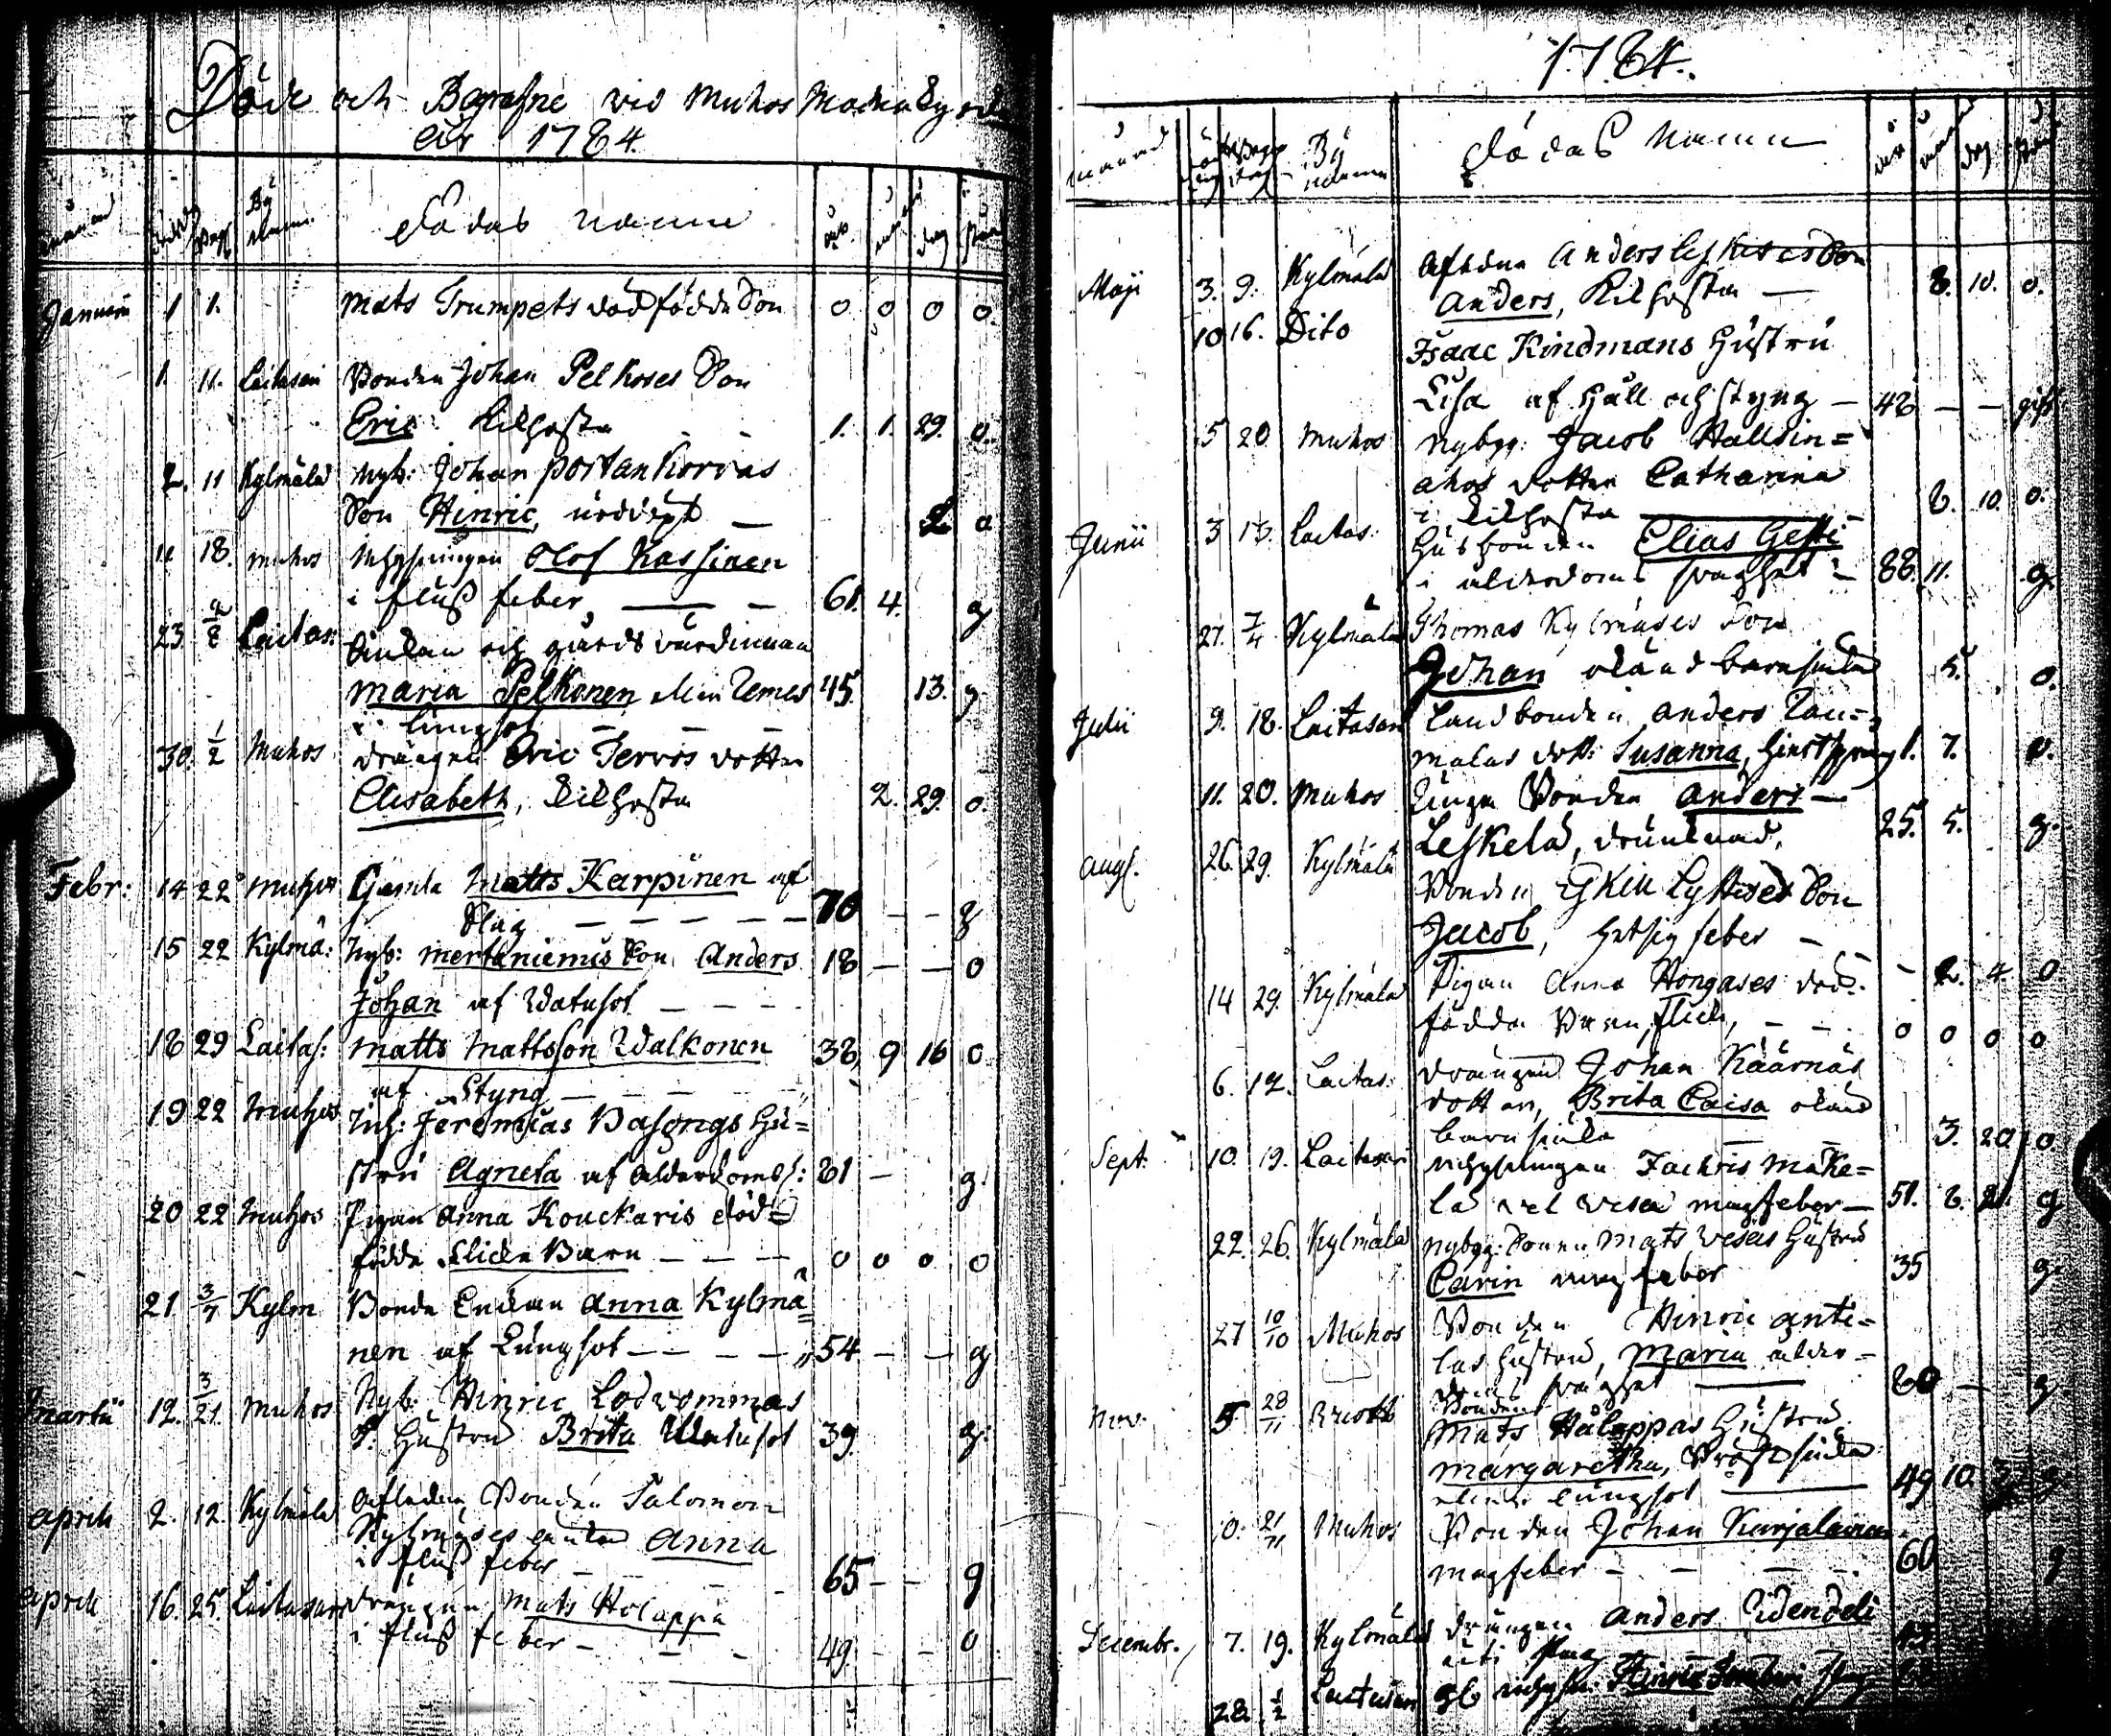 Döde och Begrafne vid Muhos Moderkyrka
åhr 1784.
månad död begr By namn dödas namn åhr månad dag stånd
Januarii 1 1. Mats Trumpets dödfödde Son 0 0 0 0.
1. 11. Laitasari Bonden Johan Pelkoses Son
Eric Kikhosta 1. 1. 29. 0.
2. 11 Kylmälä Nyb: Johan portankorvas
Son Hinric, nöddöpt — 2. 0
11 18. Muhos Inhysningen Olof Kassinen
i fluss feber — 61. 4. g
23. 2/8 Laitas: Enkan och gårds värdinnan
Maria Pelkonen 45. 13. g
i lungsot — —
30. 1/2 Muhos drängen Eric Tervos dotter
Elisabeth, Kikhosta 2. 29. 0.
Febr: 14 22 Muhos Gamla Matts Karpinen af
Slag — — — — 70 — — g
15 22 Kylmä: Nyb: mertaniemis Son Anders 18 — — 0
Johan af Watusot — — —
18 29 Laitas: Matts Mattsson Walkonen 38, 9 16 0
af Styng — — —
19 22 Muhos Inh: Jeremias Basongs Hu=
stru Agneta af ålderdoms: 81 — g.
20 22 Muhos Pigan Anna Kouckaris död=
födde flicke Barn — — — 0 0 0 0
21 3/7 Kylm Bonde Enkan Anna Kylmä=
nen af Lungsot — — — 54 — — g
Martii 12. 3/21. Muhos Nyb. Hinric Lodvommas
Hustru Brita Watusot 39 g.
Aprili 2. 12. Kylmälä Afledne Bonden Salomon
Kylmäses enka Anna
i fluss feber — 65 — — g
Aprili 16. 25. Laitasari drängen Mats Holappa
i fluss feber — 49. — — 0
1784.
månad By namn Dödas Namn åhr månad dag stånd
Maji 3. 9. Kylmälä Afledne Anders Leskises Son
Anders, Kikhosta — 8. 10. 0.
10 16. Dito Isaac Kindmans Hustru
Lisa af Håll och styng — 48 — — gift
15 20 Muhos Nybyg: Jacob Halloin=
ahos dotter Catharina
i Kikhosta — 8. 10. 0.
Junii 3 13. Laitas: Husbonden Elias Gesti
i ålderdoms svaghet — 88. 11. g.
27. 7/4 Kylmälä Thomas Kylmäses Son
Johan okänd barnsiuka 5. 0.
Julii 9. 18. Laitasari Landbonden Anders Rau=
malas dott: Susanna, 1. 7. 0.
11. 20. Muhos Unga Bonden Anders —
Leskelä, drunknad. 25. 5. g.
Aug. 26. 29. Kylmälä Bonden Eskill Lyttises Son
Jacob, hetsig feber — — 2. 4. 0
14 29. Kylmälä Pigan Anna Hongases död=
födde Barn, flicka, — — 0 0 0 0
6. 12. Laitas: drängen Johan Käärnäs
dotter, Brita Caisa okänd
barnsiuka — — 3. 20 0
Sept. 10. 19. Laitasari inhysningen Zachris Make=
lä vel Wesa magfeber — 51. 8. 21. g
22. 26. Kylmälä Nybyg: Sonen Mats Wesas hustru
Carin magfeber 35 g.
27 10/10 Muhos Bonden Hinric Anti=
las hustru, Maria ålder=
doms svaghet — 80 — g
Nov. 5. 28/11 Bonden
Mats Holappas Hustru
Margaretha, Bröstsiuka
eller lungsot — 49 10. g
10. 21/11 Muhos Bonden Johan Karjalainen
magfeber — — — 60 g
Decembr. 7. 19. Kylmälä drängen Anders
28. 1/2 Laitasari